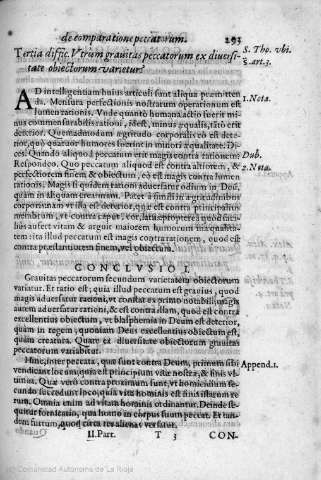 de comparatione peccatorum. 293
Tertia diffic. Vtrum grauitas peccatorum ex diuersi-
tate obiectorum varietur?
S. Tho. vbi.
s. art. 3.
AD intelligentiam huius articuli sunt aliqua præmitten
da. Mensura perfectionis nostrarum operationum est
lumen rationis. Vnde quanto humana actio fuerit mi
nus commensurabilis rationi, idest, minus æqualis, tāto erit
deterior. Quemadmodum ægritudo corporalis eò est dete-
rior, quò quatuor humores fuerint in minori æqualitate. Di-
ces. Quando aliquod peccatum erit magis contra rationem?
Respondeo. Quo peccatum aliquod est contra altiorem, &
perfectiorem finem & obiectum, eò est magis contra lumen
rationis. Magis si quidem rationi aduersatur odium in Deū,
quàm in aliquam creaturam. Patet à simili in ægritudinibus
corporum: nam illa est deterior, quæ est contra principalius
membrum, vt contra caput, cor, lata
lius aufert vitam & arguit maiorem humorum inæqualita-
tem: ita illud peccatum est magis contra rationem, quod est
contra præstantiorem finem, vel obiectum.
1. Nota.
Dub.
2. Nota.
CONCLVSIO I.
Grauitas peccatorum secundum varietatem obiectorum
variatur. Et ratio est; quia illud peccatum est grauius, quod
magis aduersatur rationi, vt constat ex primo notabili, magis
autem aduersatur rationi, & est contra illam, quod est contra
excellentius obiectum, vt blasphemia in Deum est deterior,
quàm in regem, quoniam Deus excellentius obiectum est,
quàm creatura. Quare ex diuersitate obiectorum grauitas
peccatorum variabitur.
Hinc infer peccata, quæ sunt contra Deum, primum sibi
vendicant locum, quia est principium vitæ nostræ, & finis vl
timus. Quæ verò contra proximum sunt, vt homicidium se
cundo succedunt loco, quia vita hominis est finis istarum re
rum. Omnia enim ad vitam hominis ordinantur. Deinde se-
quitur fornicatio, quia homo in corpus suum peccat. Et tan-
dem furtum, quod circa res alienas versatur.
Append. 1.
II. Part. T 3 CON-
(c) Comunidad Autónoma de La Rioja